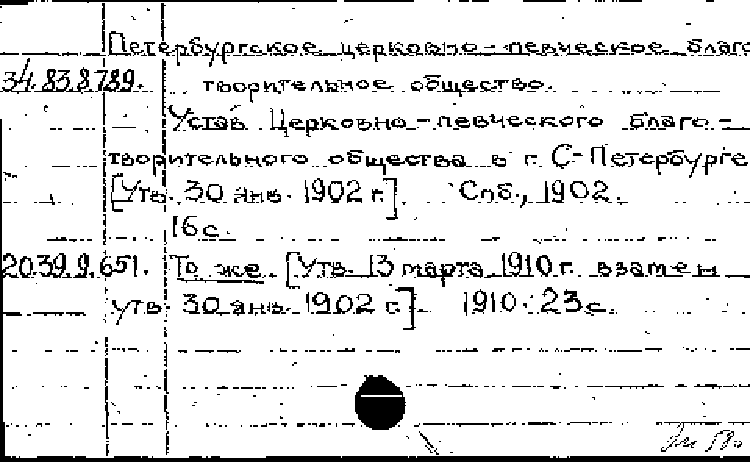 Петербургское церковно-певческое благо
34.83.8.789. творительное общество.
Устав Церковно-певческого благо-
творительного общества в г. С-Петербурге
[Утв. 30 янв. 1902 г.]. Спб., 1902.
16 с.
20.39.9.651. То же. [Утв. 13 марта 1910 г. взамен
утв. 30 янв. 1902 г.]. 1910. 23 с.